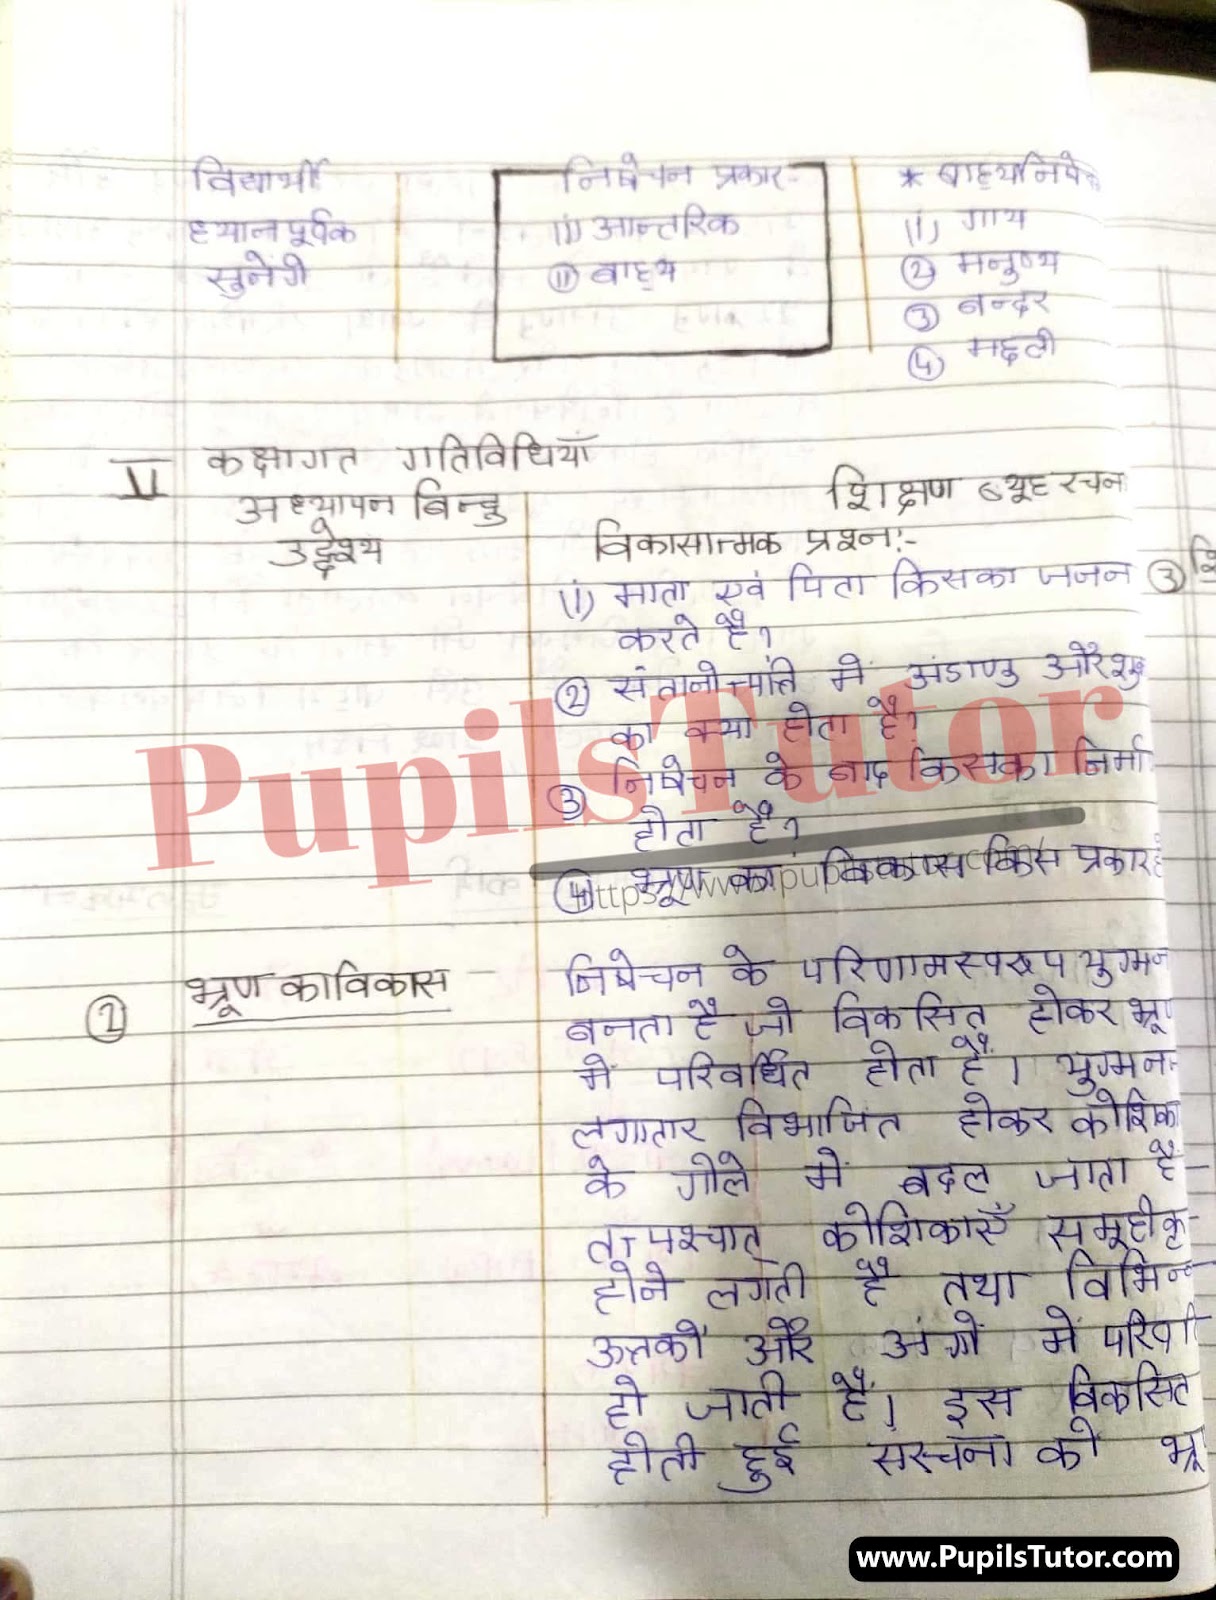 विद्यार्थी
ध्यानपूर्वक
सुनेंगे
निषेचन प्रकार-
(i) आन्तरिक
(ii) बाह्य
* बाह्यनिषे
(1) गाय
(2) मनुष्य
(3) बन्दर
(4) मछली
V कक्षागत गतिविधियाँ
अध्यापन बिन्दु
उद्देश्य
शिक्षण व्यूहरचन
विकासात्मक प्रश्न:-
(1) माता एवं पिता किसका जजन
करते है?
(2) संतानोत्पत्ति में अंडाणु और शु
का क्या होता है?
(3) निषेचन के बाद किसका निर्मा
होता है?
(4) भ्रूण का विकास किस प्रकार
(3) शि
PupilsTutor
(2) भ्रूण का विकास -
निषेचन के परिणामस्वरूप युग्मन
बनता है जो विकसित होकर भ्रू
में परिवर्धित होता है। युग्मन
लगातार विभाजित होकर कोशिका
के गोले में बदल जाता है
तत्पश्चात् कोशिकाएँ समूहीकृ
होने लगती है तथा विभिन्न
ऊत्तकों और अंगों में परिव
हो जाती है। इस विकसित
होती हुई संरचना को भ्रू
www.PupilsTutor.com